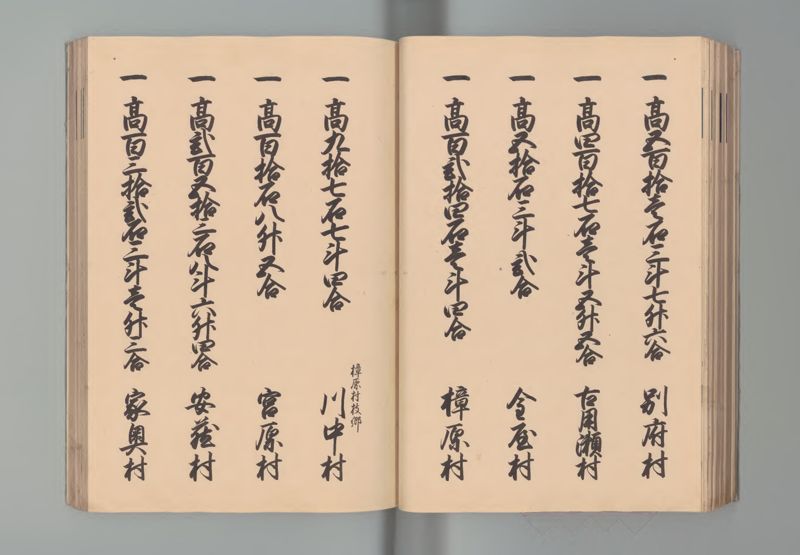 一 高五百拾壱石三斗七升六合 別府村
一 高四百拾七石壱斗五升五合 古用瀬村
一 高五拾石三斗弐合 金屋村
一 高百弐拾四石壱斗四合 樟原村
樟原村枝郷
一 高九拾七石七斗四合 川中村
一 高百拾石八升五合 宮原村
一 高弐百五拾三石八斗六升四合 安蔵村
一 高百三拾弐石三斗壱升三合 家奥村